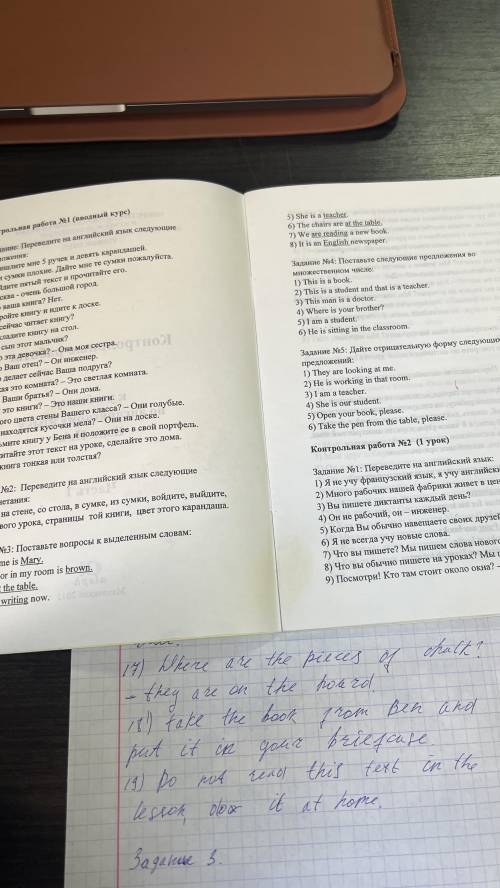 трольная работа №1 (вводный курс)
Переведите на английский язык следующие
шлите мне 5 ручек и девять карандашей.
сумки плохие. Дайте мне те сумки пожалуйста.
дите пятый текст и прочитайте его.
сква - очень большой город.
ваша книга? Нет.
ройте книгу и идите к доске.
сейчас читает книгу?
кладите книгу на стол.
сын этот мальчик?
эта девочка? – Она моя сестра.
Ваш отец? – Он инженер.
делает сейчас Ваша подруга?
ая это комната? – Это светлая комната.
Ваши братья? – Они дома.
это книги? – Это наши книги.
ого цвета стены Вашего класса? – Они голубые.
находятся кусочки мела? – Они на доске.
ьмите книгу у Бена и положите ее в свой портфель.
итайте этот текст на уроке, сделайте это дома.
книга тонкая или толстая?
№2: Переведите на английский язык следующие
етания:
на стене, со стола, в сумке, из сумки, войдите, выйдите,
вого урока, страницы той книги, цвет этого карандаша.
№3: Поставьте вопросы к выделенным словам:
me is Mary.
or in my room is brown.
t the table.
writing now.
5) She is a teacher.
6) The chairs are at the table.
7) We are reading a new book.
8) It is an English newspaper.
Задание №4: Поставьте следующие предложения во
множественном числе:
1) This is a book.
2) This is a student and that is a teacher.
3) This man is a doctor.
4) Where is your brother?
5) I am a student.
6) He is sitting in the classroom.
Задание №5: Дайте отрицательную форму следующих
предложений:
1) They are looking at me.
2) He is working in that room.
3) I am a teacher.
4) She is our student.
5) Open your book, please.
6) Take the pen from the table, please.
Контрольная работа №2 (1 урок)
Задание №1: Переведите на английский язык:
1) Я не учу французский язык, я учу английски
2) Много рабочих нашей фабрики живет в цен
3) Вы пишете диктанты каждый день?
4) Он не рабочий, он – инженер.
5) Когда Вы обычно навещаете своих друзей
6) Я не всегда учу новые слова.
7) Что вы пишете? Мы пишем слова нового
8) Что вы обычно пишете на уроках? Мы п
9) Посмотри! Кто там стоит около окна? –
17) Where are the pieces of chalk?
– they are on the board.
18) take the book from Ben and
put it in your briefcase
19) Do not read this text in the
lesson, it at home.
Задание 3.